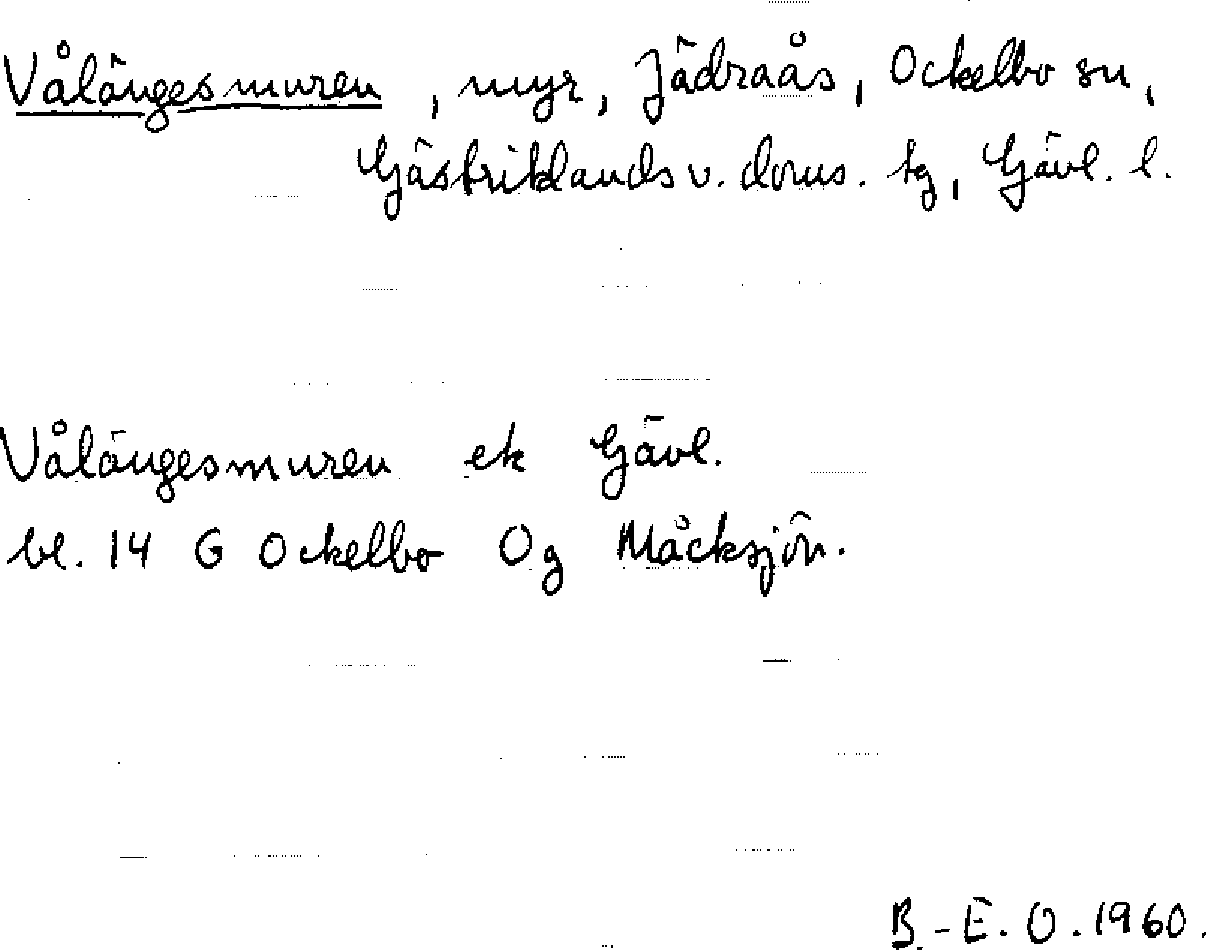 Vålängesmuren, myr, Jädraås, Ockelbo sn,
Gästriklands v. doms. tg, Gävl. l.
Vålängesmuren ek Gävl.
bl. 14 G Ockelbo 0g Måcksjön.
B.-E. O. 1960.